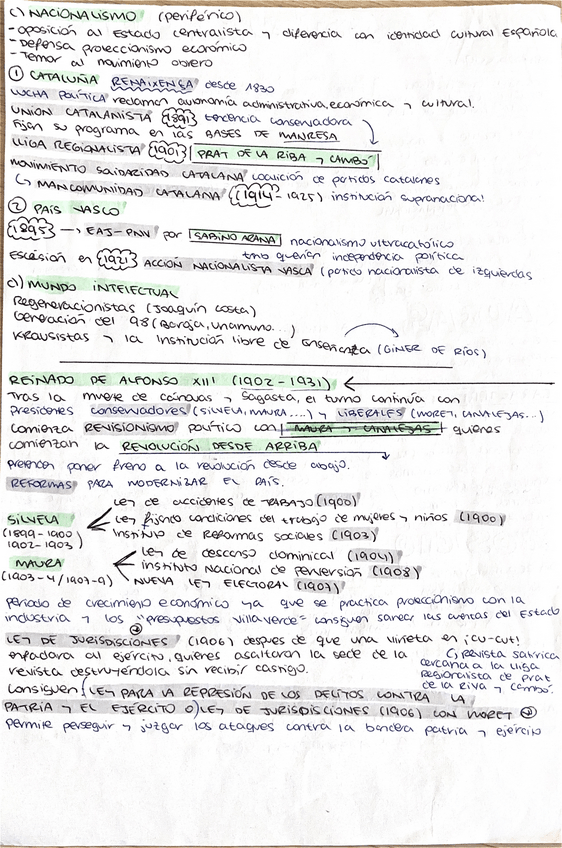 c) NACIONALISMO (periférico)
- oposición al Estado centralista y diferencia con identidad cultural Española
- Defensa proteccionismo económico
- Temor al movimiento obrero
① CATALUÑA RENAIXENÇA desde 1830
LUCHA POLÍTICA reclaman autonomía administrativa, económica y cultural.
UNION CATALANISTA (1891) tendencia conservadora
Fijan su programa en las BASES DE MANRESA
LLIGA REGIONALISTA (1901) PRAT DE LA RIBA Y CAMBÓ
MOVIMIENTO SOLIDARIDAD CATALANA coalición de partidos catalanes
↳ MANCOMUNIDAD CATALANA (1914-1925) institución supranacional
② PAÍS VASCO
1895 → EAJ-PNV por SABINO ARANA nacionalismo ultracatólico
querían independencia política
Escisión en (1921) ACCIÓN NACIONALISTA VASCA (partido nacionalista de izquierdas
d) MUNDO INTELECTUAL
Regeneracionistas (Joaquín Costa)
Generación del 98 (Baroja, Unamuno...)
Krausistas y la Institución libre de enseñanza (GINER DE RÍOS)
REINADO DE ALFONSO XIII (1902-1931)
Tras la muerte de Cánovas y Sagasta, el turno continúa con
Presidentes conservadores (SILVELA, MAURA....) y LIBERALES (MORET, CANALEJAS...)
Comienza REVISIONISMO político con MAURA Y CANALEJAS quienes
comienzan la REVOLUCIÓN DESDE ARRIBA
pretenden poner freno a la revolución desde abajo.
REFORMAS PARA MODERNIZAR EL PAÍS.
Ley de accidentes de TRABAJO (1900)
SILVELA Ley fijando condiciones del trabajo de mujeres y niños (1900)
(1899-1900 Instituto de Reformas sociales (1903)
1902-1903)
Ley de descanso dominical (1904)
MAURA instituto Nacional de Perversión (1908)
(1903-4/1907-9) NUEVA LEY ELECTORAL (1907)
Período de crecimiento económico ya que se practica proteccionismo con la
industria y los "presupuestos villaverde" consiguen sanear las cuentas del Estado
LEY DE JURISDISCIONES (1906) despues de que una viñeta en ¡cu-cut!
enfadara al ejército, quienes asaltaron la sede de la
revista destruyéndola sin recibir castigo.
↳ revista satírica
cercana a la lliga
Regionalista de Prat
de la Riva y Cambó.
Consiguen (LEY PARA LA REPRESIÓN DE LOS DELITOS CONTRA LA
PATRIA Y EL EJÉRCITO O) LEY DE JURISDISCIONES (1906) CON MORET
permite perseguir y juzgar los ataques contra la bandera patria y ejército